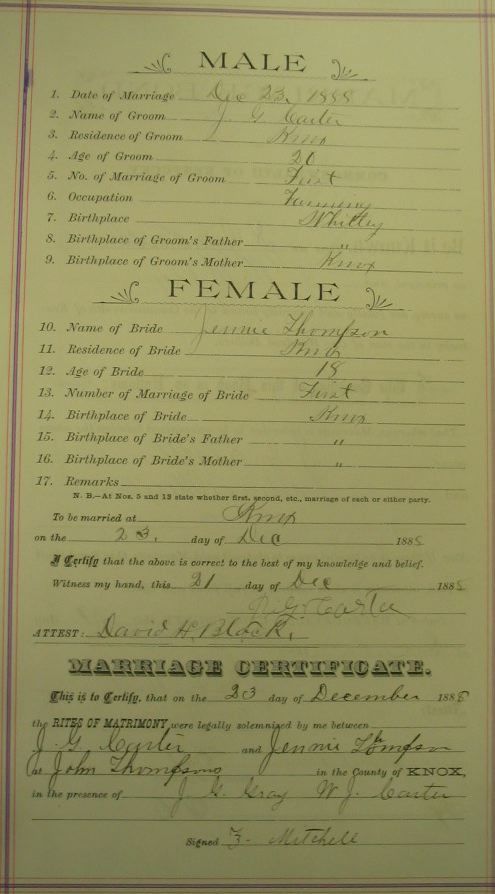 MALE
1. Date of Marriage Dec 23, 1888
2. Name of Groom J. G Carter
3. Residence of Groom Knox
4. Age of Groom 20
5. No. of Marriage of Groom First
6. Occupation Farming
7. Birthplace Whitley
8. Birthplace of Groom's Father "
9. Birthplace of Groom's Mother Knox
FEMALE
10. Name of Bride Jennie Thompson
11. Residence of Bride Knox
12. Age of Bride 18
13. Number of Marriage of Bride First
14. Birthplace of Bride Knox
15. Birthplace of Bride's Father "
16. Birthplace of Bride's Mother "
17. Remarks
N. B.—At Nos. 5 and 13 state whether first, second, etc., marriage of each or either party.
To be married at Knox
on the 23. day of Dec 1888
I Certify that the above is correct to the best of my knowledge and belief.
Witness my hand, this 21 day of Dec 1888
Carter
ATTEST: David H. Black.
MARRIAGE CERTIFICATE.
This is to Certify, that on the 23 day of December 1888
the RITES OF MATRIMONY were legally solemnized by me between
J. G Carter and Jennie Tompson
at John Thompsons in the County of KNOX,
in the presence of J. G. Gray W. J. Carter
Signed F. Mitchell